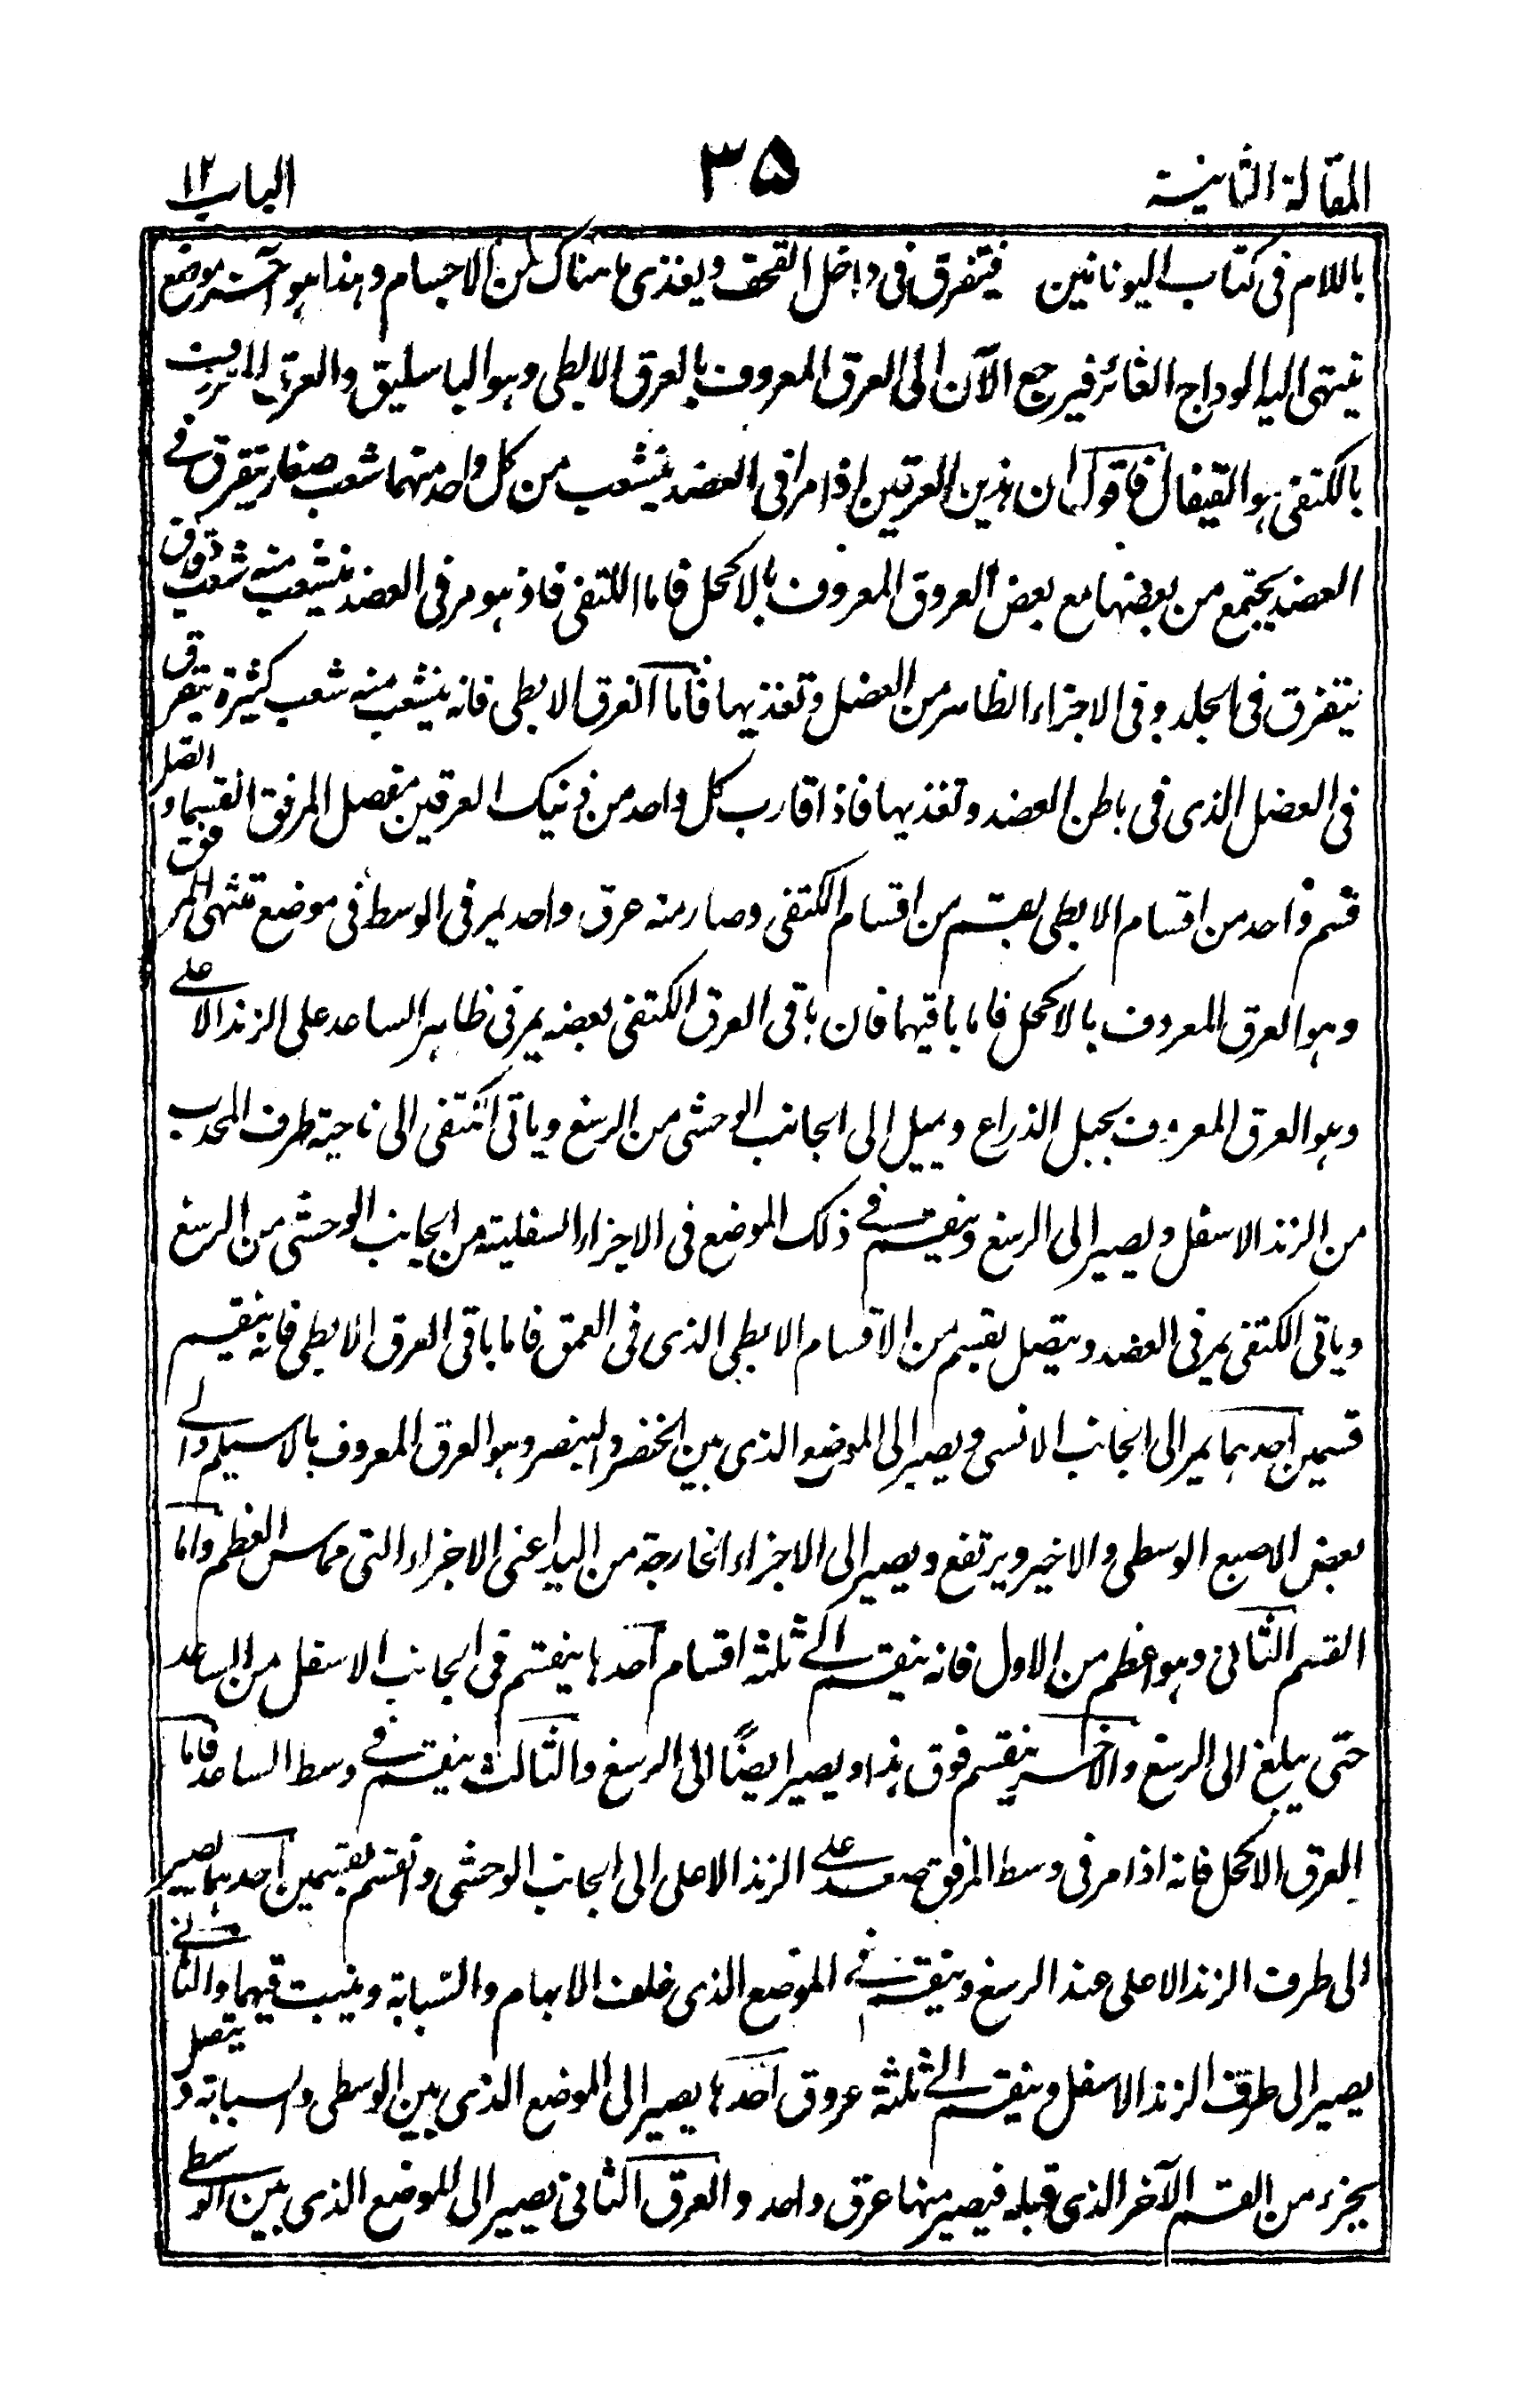 المقالة الثانية ٣٥ الباب ١٢
باللام فى كتاب اليونانين فيتفرق فى داخل القحف ويغذى ما هناك من الاجسام وهذا هو آخر موضع
ينتهى اليه الوداج الغائر فيرجع الآن الى العرق المعروف بالعرق الابطى وهو الباسليق والعرق المعروف
بالكتفى هو القيفال فاقول ان هذين العرقين اذا مرا فى العضد ينشعب من كل واحد منهما شعب صغار يتفرق فے
العضد يجتمع من بعضها مع بعض العروق المعروف بالاكحل فاما الكتفى فاذ هو مر فى العضد ينشعب منه شعب دقاق
يتفرق فى الجلد وفى الاجزاء الظاهر من العضل وتغذيها فاما العرق الابطى فانه ينشعب منه شعب كثيرة يتفرق
فى العضل الذى فى باطن العضد وتغذيها فاذا قارب كل واحد من ذينك العرقين مفصل المرفق انقسما واتصل
قسم واحد من اقسام الابطى بقسم من اقسام الكتفى وصار منه عرق واحد يمر فى الوسط فى موضع منتهى المرفق
وهو العرق المعروف بالاكحل فاما باقيهما فان باقى العرق الكتفى بعضه يمر فى ظاهر الساعد على الزند الاعلے
وهو العرق المعروف بحبل الذراع ويميل الى الجانب الوحشى من الرسغ وياتى الكتفى الى ناحية طرف المحدب
من الزند الاسفل ويصير الى الرسغ وينقسم فے ذلك الموضع فى الاجزاء السفلية من الجانب الوحشى من الرسغ
وياقى الكتفى يمر فى العضد ويتصل بقسم من الاقسام الابطى الذى فى العمق فاما باقى العرق الابطى فانه ينقسم
قسمين احدهما يمر الى الجانب الانسى ويصير الى الموضع الذى بين الخنصر والبنصر وهو العرق المعروف بالاسيلم والے
بعض الاصبع الوسطى والاخير ويرتفع ويصير الى الاجزاء الخارجة من اليد اعنى الاجزاء التى مماس العظم واما
القسم الثانى وهو اعظم من الاول فانه ينقسم الے ثلثه اقسام احدها ينقسم فى الجانب الاسفل من الساعد
حتى يبلغ الى الرسغ والآخر ينقسم فوق هذا ويصير ايضًا الى الرسغ والثالث ينقسم فے وسط الساعد فاما
العرق الاكحل فانه اذا مر فى وسط المرفق صعد علے الزند الاعلى الى الجانب الوحشى وانقسم بقسمين احدهما يصير
الى طرف الزند الاعلى عند الرسغ وينقسم فے الموضع الذى خلف الابهام والسبابة وينبت فيهما والثانے
يصير الى طرف الزند الاسفل وينقسم الے ثلثة عروق احدها يصير الى الموضع الذى بين الوسطى والسبابة ويتصل
بجزء من القسم الآخر الذى قبله فيصير منها عرق واحد والعرق الثانى يصير الى الموضع الذى بين الوسطے